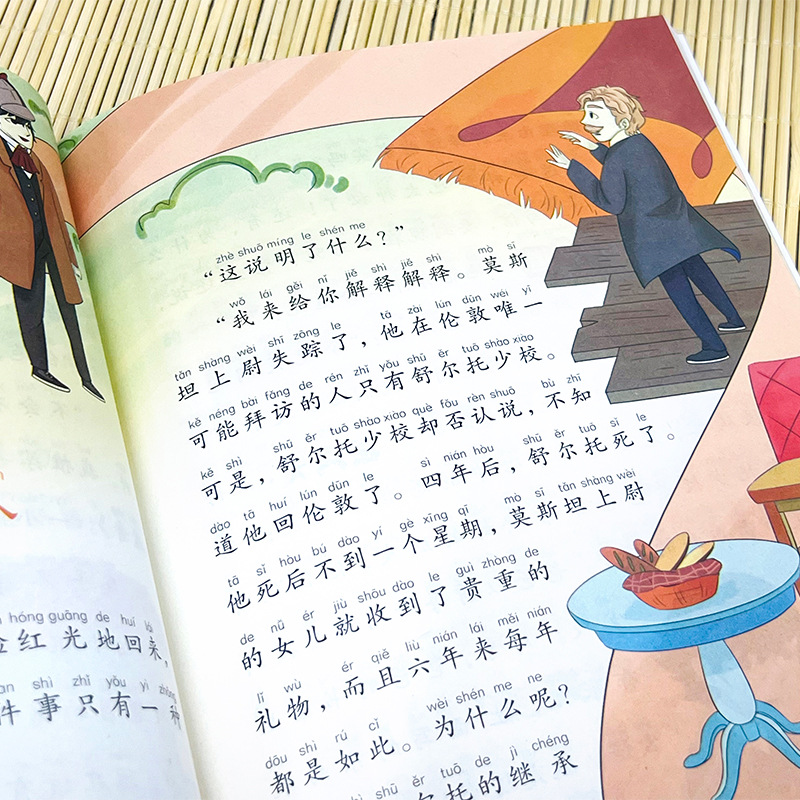 hóng guāng de huí lái
红光地回来,
shì zhǐ yǒu yì zhǒng
件事只有一种
zhè shuō míng le shén me
“这说明了什么?”
wǒ lái gěi nǐ jiě shì jiě shì mò sī
“我来给你解释解释。莫斯
tǎn shàng wèi shī zōng le tā zài lún dūn wéi yī
坦上尉失踪了,他在伦敦唯一
kě néng bài fǎng de rén zhǐ yǒu shū ěr tuō shào xiào
可能拜访的人只有舒尔托少校。
kě shì shū ěr tuō shào xiào què fǒu rèn shuō bù zhī
可是,舒尔托少校却否认说,不知
dào tā huí lún dūn le sì nián hòu shū ěr tuō sǐ le
道他回伦敦了。四年后,舒尔托死了。
tā sǐ hòu bú dào yí gè xīng qī mò sī tǎn shàng wèi
他死后不到一个星期,莫斯坦上尉
de nǚ ér jiù shōu dào le guì zhòng de
的女儿就收到了贵重的
lǐ wù ér qiě liù nián lái měi nián
礼物,而且六年来每年
dōu shì rú cǐ wèi shén me ne
都是如此。为什么呢?
shū ěr tuō de jì chéng
尔托的继承